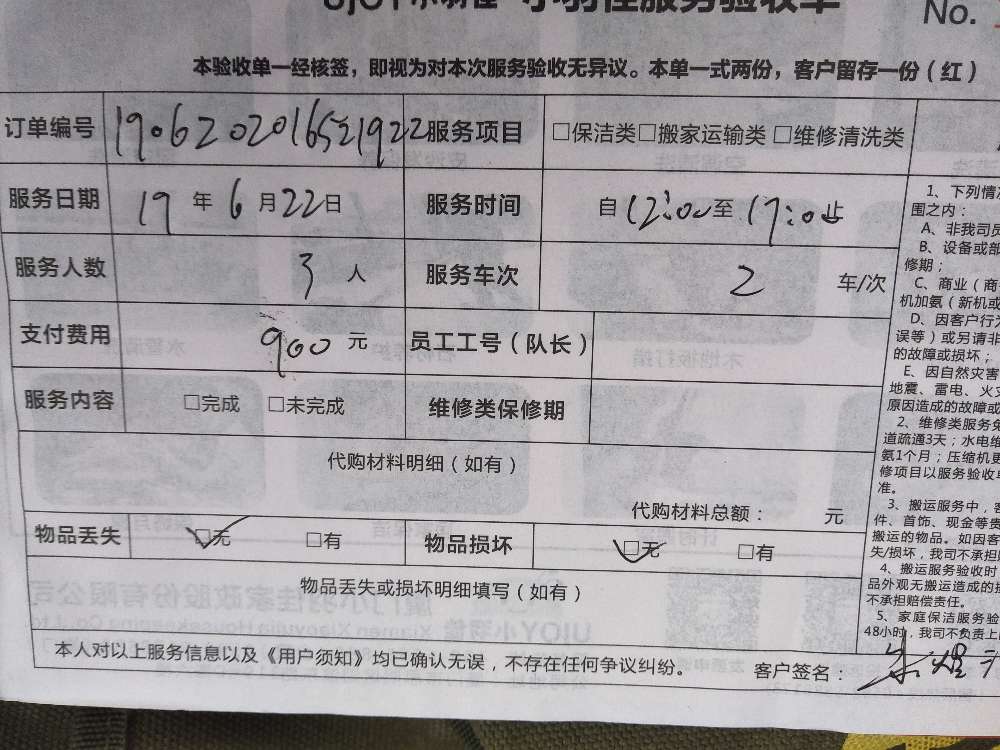 UJOY小羽佳 小羽佳服务验收单
No.
本验收单一经核签，即视为对本次服务验收无异议。本单一式两份，客户留存一份（红）
订单编号 190620201652​1922 服务项目 □保洁类□搬家运输类 □维修清洗类
服务日期 19 年 6 月 22 日 服务时间 自 12:00 至 17:00 止
服务人数 3 人 服务车次 2 车/次
支付费用 900 元 员工工号（队长）
服务内容 □完成 □未完成 维修类保修期
代购材料明细（如有）
代购材料总额： 元
物品丢失 ☑无 □有 物品损坏 ☑无 □有
物品丢失或损坏明细填写（如有）
本人对以上服务信息以及《用户须知》均已确认无误，不存在任何争议纠纷。 客户签名：
1、下列情
围之内：
A、非我司员
B、设备或部
修期；
C、商业（商
机加氨（新机或
D、因客户行为
误等）或另请非
的故障或损坏；
E、因自然灾害
地震、雷电、火灾
原因造成的故障或
2、维修类服务免
道疏通3天；水电维
氨1个月；压缩机更
修项目以服务验收单
准。
3、搬运服务中，客
件、首饰、现金等贵
搬运的物品。如因客
失/损坏，我司不承担
4、搬运服务验收时
品外观无搬运造成的损
不承担赔偿责任。
5、家庭保洁服务验
48小时，我司不负责上